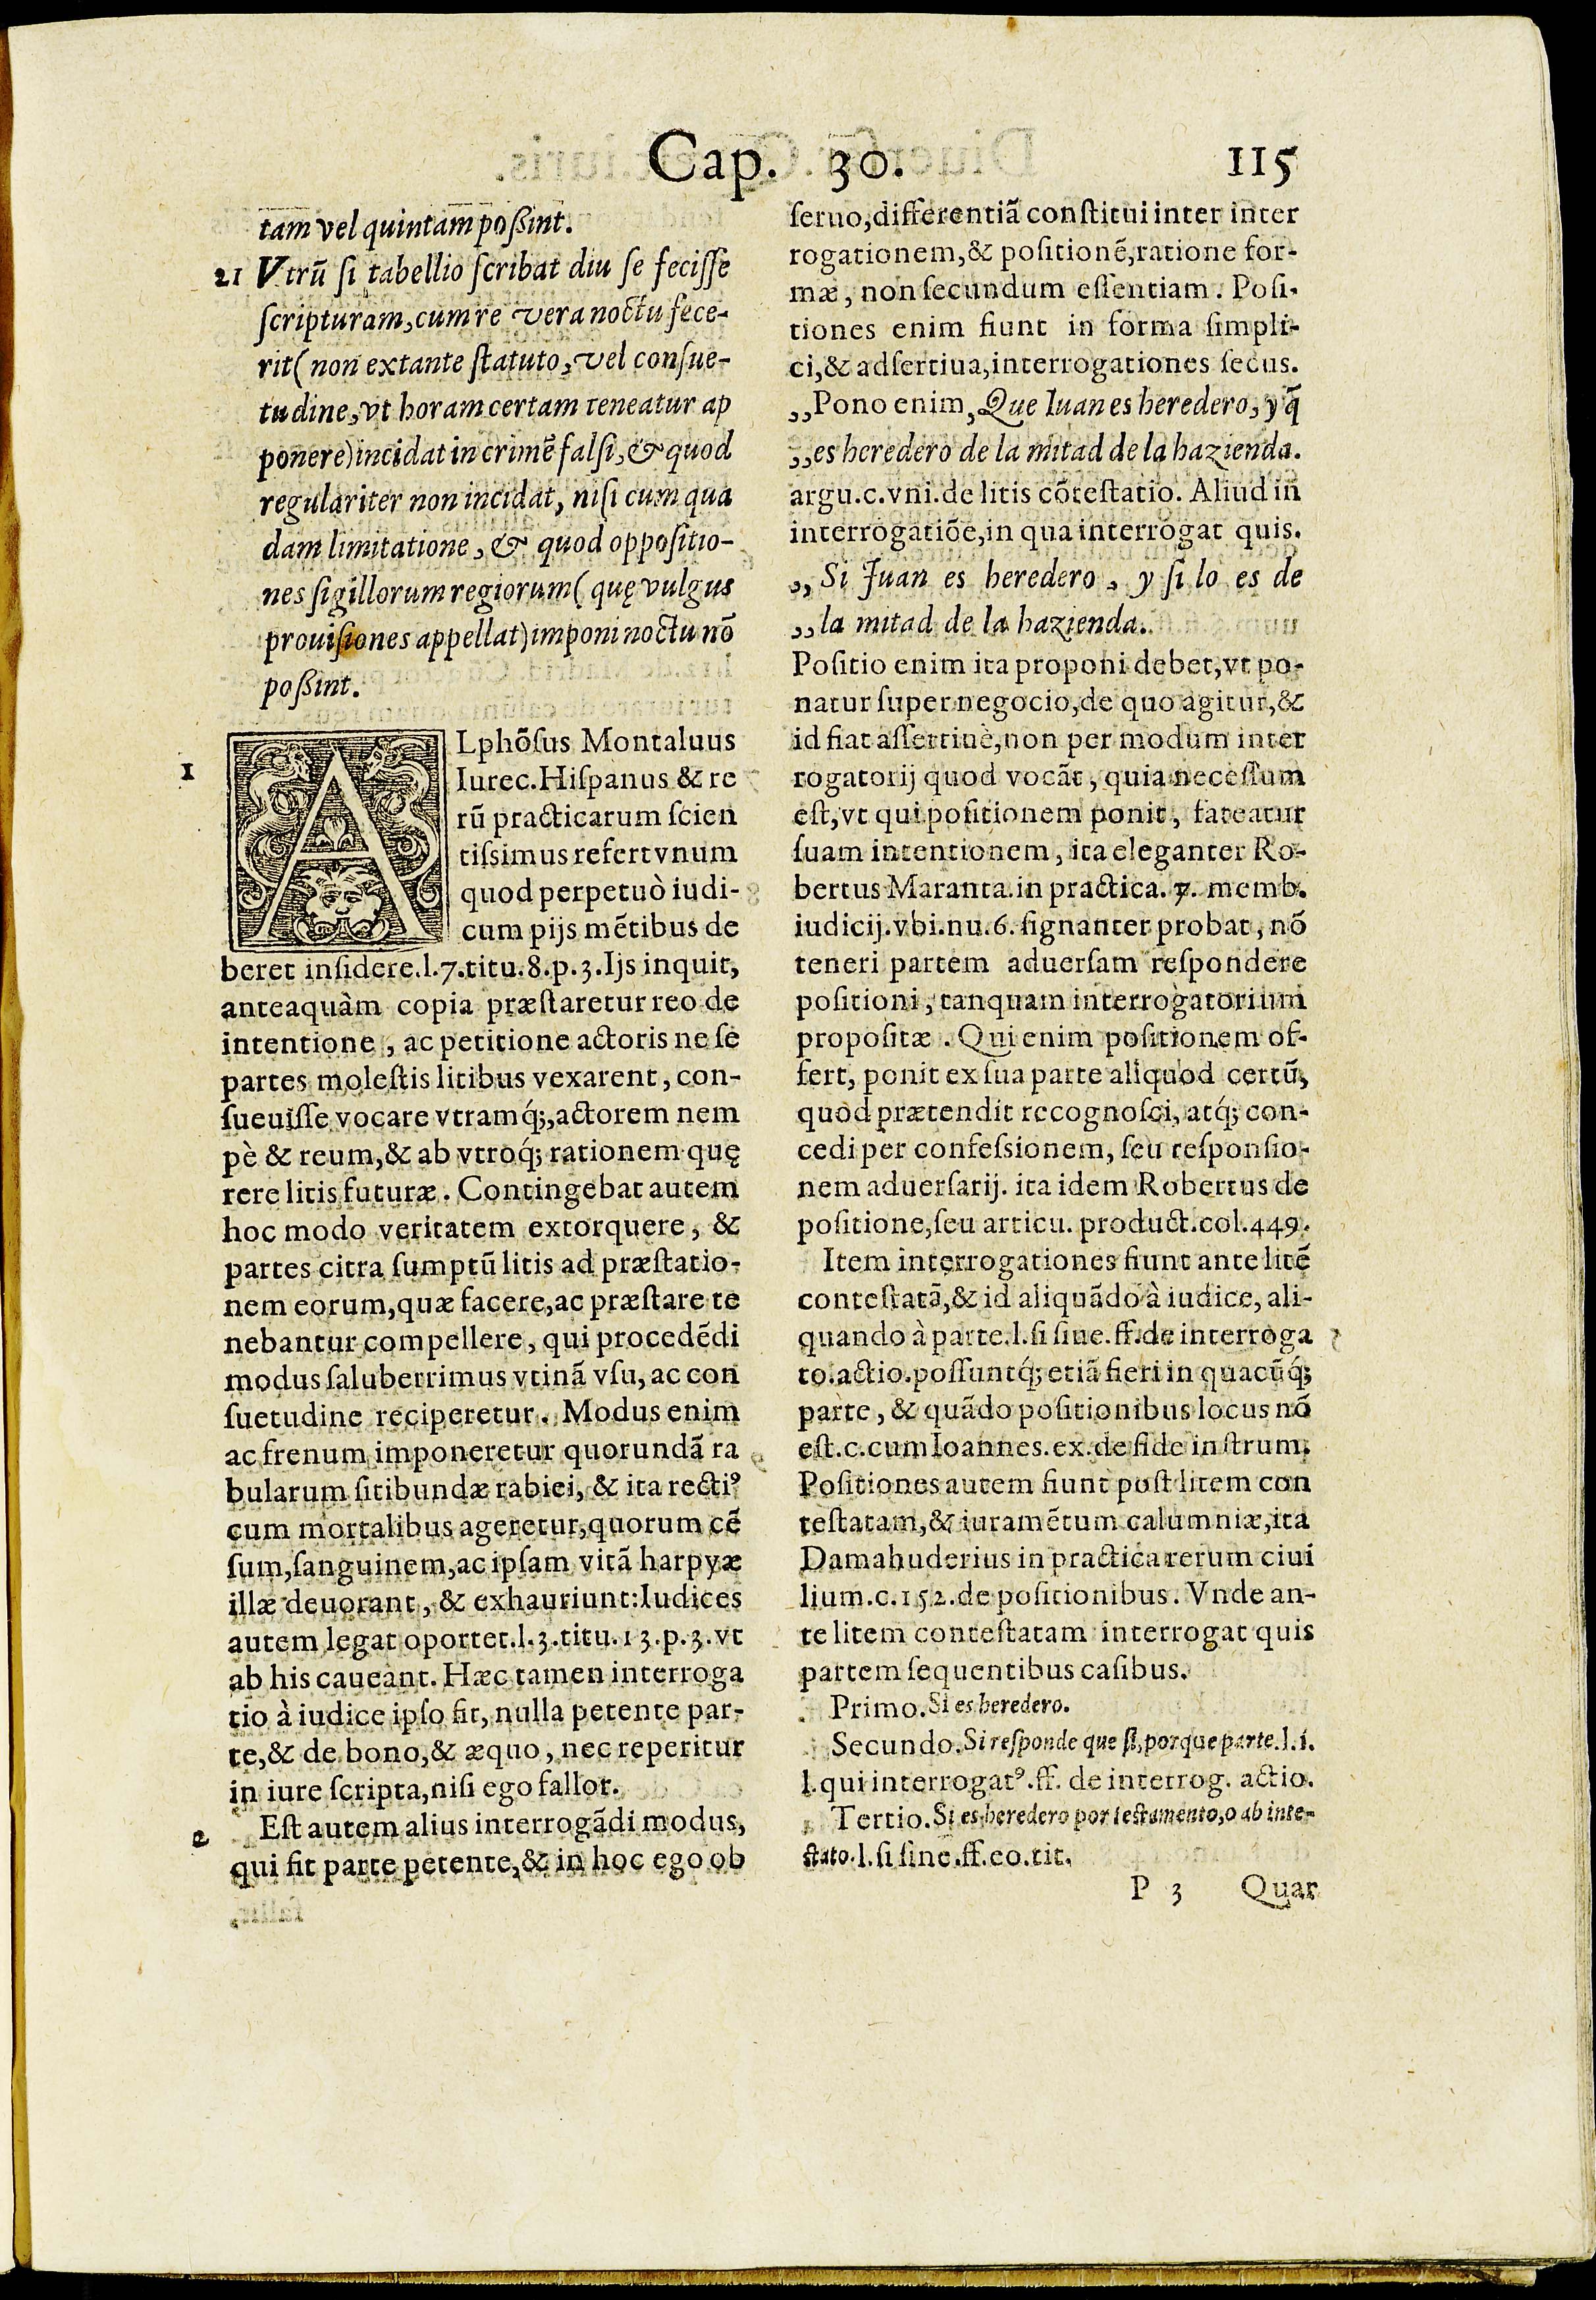 Cap. 30.
115
tam vel quintam poßint.
21 Vtrũ ſi tabellio ſcribat diu ſe feciſſe
ſcripturam, cum re vera noctu fece-
rit (non extante ſtatuto, vel conſue-
tudine, vt horam certam teneatur ap
ponere) incidat in crimẽ falſi, & quod
regulariter non incidat, niſi cum qua
dam limitatione, & quod oppoſitio-
nes ſigillorum regiorum (quę vulgus
prouiſiones appellat) imponi noctu nõ
poßint.
1
ALphõſus Montaluus
Iurec. Hiſpanus & re
rũ practicarum ſcien
tiſsimus refert vnum
quod perpetuò iudi-
cum pijs mẽtibus de
beret inſidere. l. 7. titu. 8. p. 3. Ijs inquit,
anteaquàm copia præſtaretur reo de
intentione, ac petitione actoris ne ſe
partes moleſtis litibus vexarent, con-
ſueuiſſe vocare vtramq́;, actorem nem
pè & reum, & ab vtroq́; rationem quę
rere litis futuræ. Contingebat autem
hoc modo veritatem extorquere, &
partes citra ſumptũ litis ad præſtatio-
nem eorum, quæ facere, ac præſtare te
nebantur compellere, qui procedẽdi
modus ſaluberrimus vtinã vſu, ac con
ſuetudine reciperetur. Modus enim
ac frenum imponeretur quorundã ra
bularum ſitibundæ rabiei, & ita recti⁹
cum mortalibus ageretur, quorum cẽ
ſum, ſanguinem, ac ipſam vitã harpyæ
illæ deuorant, & exhauriunt: Iudices
autem legat oportet. l. 3. titu. 13. p. 3. vt
ab his caueant. Hæc tamen interroga
tio à iudice ipſo fit, nulla petente par-
te, & de bono, & æquo, nec reperitur
in iure ſcripta, niſi ego fallor.
2 Eſt autem alius interrogãdi modus,
qui fit parte petente, & in hoc ego ob
ſeruo, differentiã conſtitui inter inter
rogationem, & poſitionẽ, ratione for-
mæ, non ſecundum eſſentiam. Poſi-
tiones enim fiunt in forma ſimpli-
ci, & adſertiua, interrogationes ſecus.
,, Pono enim, Que Iuan es heredero, y q̃
,, es heredero de la mitad de la hazienda.
argu. c. vni. de litis cõteſtatio. Aliud in
interrogatiõe, in qua interrogat quis.
,, Si Juan es heredero, y ſi lo es de
,, la mitad de la hazienda.
Poſitio enim ita proponi debet, vt po-
natur ſuper negocio, de quo agitur, &
id fiat aſſertiuè, non per modum inter
rogatorij quod vocãt, quia neceſſum
eſt, vt qui poſitionem ponit, fateatur
ſuam intentionem, ita eleganter Ro-
bertus Maranta. in practica. 7. memb.
iudicij. vbi. nu. 6. ſignanter probat, nõ
teneri partem aduerſam reſpondere
poſitioni, tanquam interrogatorium
propoſitæ. Qui enim poſitionem of-
fert, ponit ex ſua parte aliquod certũ,
quod prætendit recognoſci, atq́; con-
cedi per confeſsionem, ſeu reſponſio-
nem aduerſarij. ita idem Robertus de
poſitione, ſeu articu. product. col. 449.
Item interrogationes fiunt ante litẽ
conteſtatã, & id aliquãdo à iudice, ali-
quando à parte. l. ſi ſine. ff. de interroga
to. actio. poſſuntq́; etiã fieri in quacũq́;
parte, & quãdo poſitionibus locus nõ
eſt. c. cum Ioannes. ex. de fide inſtrum.
Poſitiones autem fiunt poſt litem con
teſtatam, & iuramẽtum calumniæ, ita
Damahuderius in practica rerum ciui
lium. c. 152. de poſitionibus. Vnde an-
te litem conteſtatam interrogat quis
partem ſequentibus caſibus.
Primo. Si es heredero.
Secundo. Si reſponde que ſi, por que parte. l. 1.
l. qui interrogat⁹. ff. de interrog. actio.
Tertio. Si es heredero por teſtamento, o ab inte-
ſtato. l. ſi ſine. ff. eo. tit.
P 3 Quar